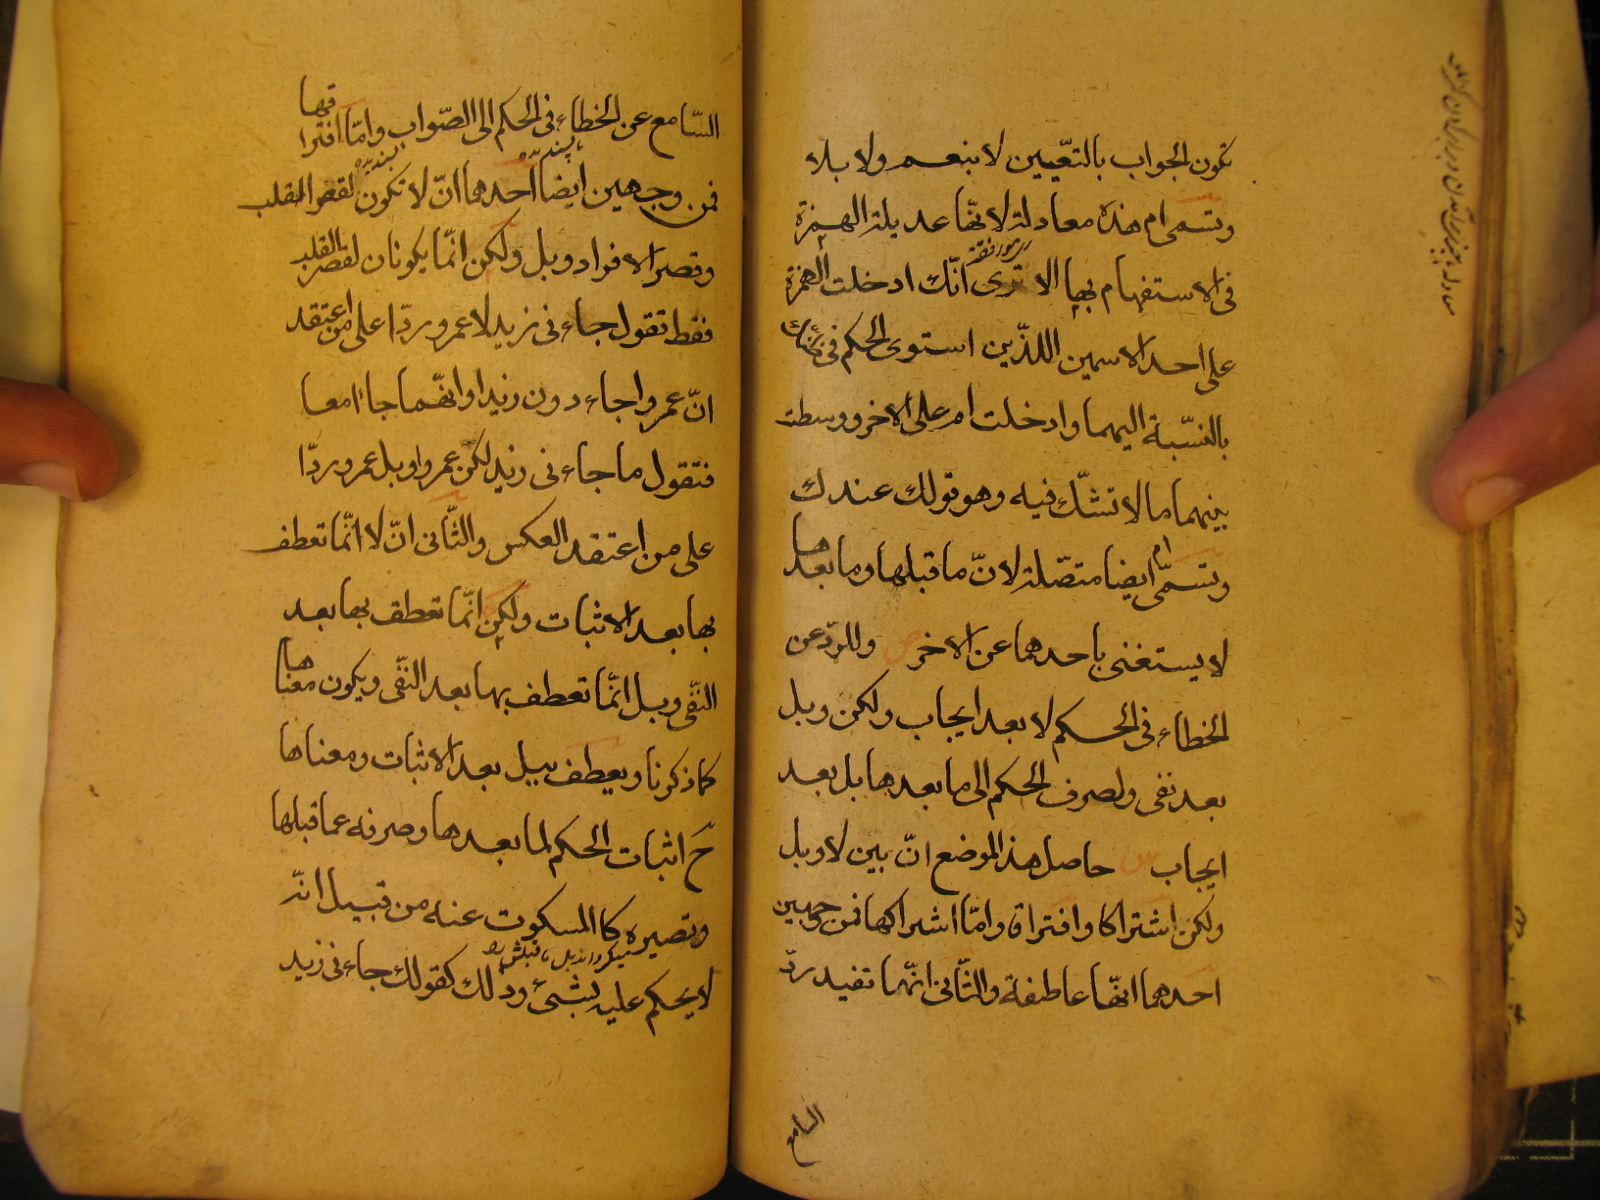 تكون الجواب بالتعّيين لا بنعم ولا بلا
وتسمى ام هذه معادلة لانها عديلة الهمزة
فى الاستفهام بها الا ترى انّك ادخلت الهمزة
على احد الاسمين اللذّين استوى الحكم فى ظنّك
بالنسّبة اليهما وادخلت ام على الاخر ووسطت
بينهما ما لا تشكّ فيه وهو قولك عندك
وتسمّى ام ايضا متصّلة لانّ ما قبلها وما بعدها
لا يستغنى باحدهما عن الاخر ص وللردّ عن
الخطاء فى الحكم لا بعد ايجاب ولكن وبل
بعد نفى ولصرف الحكم الى ما بعدها بل بعد
ايجاب ش حاصل هذا الموضع انّ بين لا وبل
ولكن اشتراكا وافتراقا وامّا اشتراكها فمن وجهين
احدهما انهّا عاطفة والثّانى انّها تفيد ردّ
السامع
السّامع عن الخطاء فى الحكم الى الصّواب وامّا افتراقها
فمن وجهين ايضا احدهما انّ لا تكون لقصر القلب
وقصر الافراد وبل ولكن انّما يكونان لقصر القلب
فقط تقول جاءنى زيد لا عمرو ردّا على من اعتقد
انّ عمروا جاء دون زيد او انهّما جاءا معا
فتقول ما جاءنى زيد لكن عمرو او بل عمرو ردّا
على من اعتقد العكس والثّانى انّ لا انّما تعطف
بها بعد الاثبات ولكن انّما تعطف بها بعد
النفّى وبل انّما تعطف بها بعد النفّى ويكون معناها
كما ذكرنا ويعطف ببل بعد الاثبات ومعناها
ح اثبات الحكم لما بعدها وصرفه عما قبلها
وتصيره كالمسكوت عنه من قبيل انّه
لا يحكم عليه بشىء وذلك كقولك جاءنى زيد